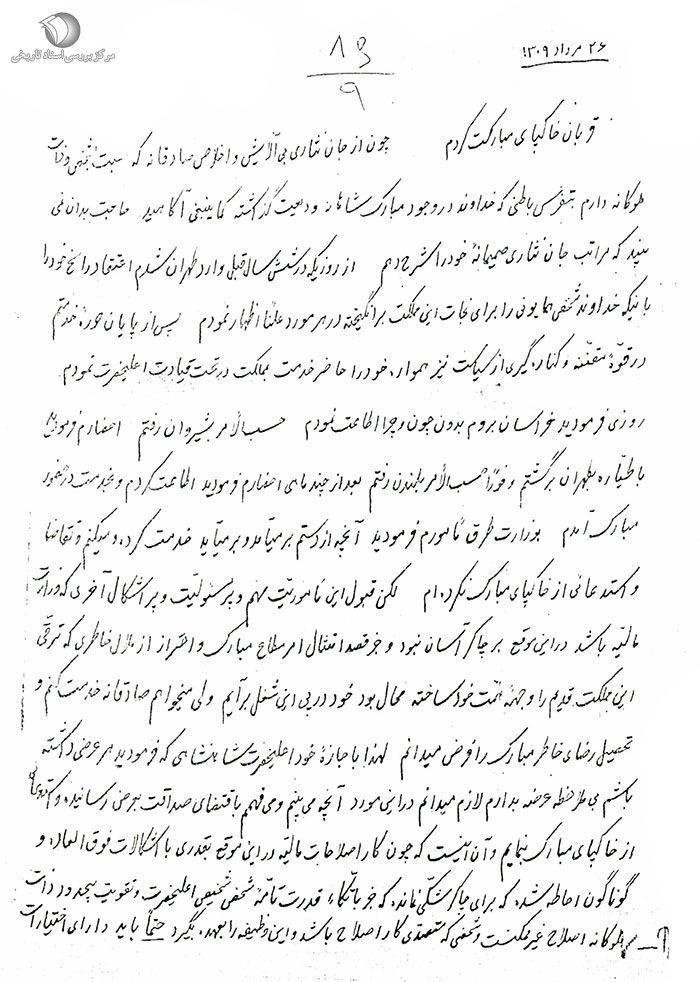 مرکز بررسی اسناد تاریخی
۲۶ مرداد ۱۳۰۹
۱۳
۹
قربان خاکپای مبارکت گردم چون از جان نثاری بی‌آلایش و اخلاص صادقانه که نسبت بشخص و ذات
ملوکانه دارم بتفرس باطنی که خداوند در وجود مبارک شاهانه ودیعت گذاشته کماینبغی آگاهید حاجت بدان نمی
بینید که مراتب جان نثاری صمیمانهٔ خود را شرح دهم از روزیکه در شش سال قبل وارد طهران شدم اعتقاد راسخ خود را
باینکه خداوند شخص همایونی را برای نجات این مملکت برانگیخته در هر مورد علناً اظهار نمودم پس از پایان دورهٔ خدمتم
در قوهٔ مقننه و کناره‌گیری از سیاست نیز همواره خود را حاضر خدمت مملکت در تحت قیادت اعلیحضرت نمودم
روزی فرمودید بخراسان بروم بدون چون و چرا اطاعت نمودم حسب‌الامر بشیروان رفتم احضارم فرمودید
با طیاره بطهران برگشتم و فوراً حسب‌الامر بلندن رفتم بعد از چند ماهی احضارم فرمودید اطاعت کردم و بخدمت در حضور
مبارک آمدم بوزارت طرق مأمورم فرمودید آنچه از دستم برمیآمد و برمیآید خدمت کرده و میکنم و تقاضا
و استدعائی از خاکپای مبارک نکرده‌ام لکن قبول این مأموریت مهم و پرمسئولیت و پر اشکال آخری که وزارت
مالیه باشد در این موقع بر چاکر آسان نبود و جز قصد امتثال امر مطاع مبارک و احتراز از ملال خاطری که ترقی
این مملکت قدیم را وجههٔ همت خود ساخته محال بود خود در پی این شغل برآیم ولی میخواهم صادقانه خدمت کنم و
تحصیل رضای خاطر مبارک را فرض میدانم لهذا با جازهٔ خود اعلیحضرت شاهنشاهی که فرمودید هر عرضی داشته
باشم بی‌ملاحظه عرضه بدارم لازم میدانم در این مورد آنچه می‌بینم و می‌فهمم باقتضای صداقت بعرض رسانیده و استدعای
از خاکپای مبارک بنمایم و آن اینست که چون کار اصلاحات مالیه در این موقع بقدری با اشکالات فوق‌العاده و
گوناگون احاطه شده که برای چاکر شکی نمانده که جز باتکاء قدرت تامهٔ شخص شخیص اعلیحضرت و تقویت بیحدود ذات
ملوکانه اصلاح غیر ممکنست و شخصی که متصدی کار اصلاح باشد و این وظیفه را بعهده بگیرد حتماً باید دارای اختیارات